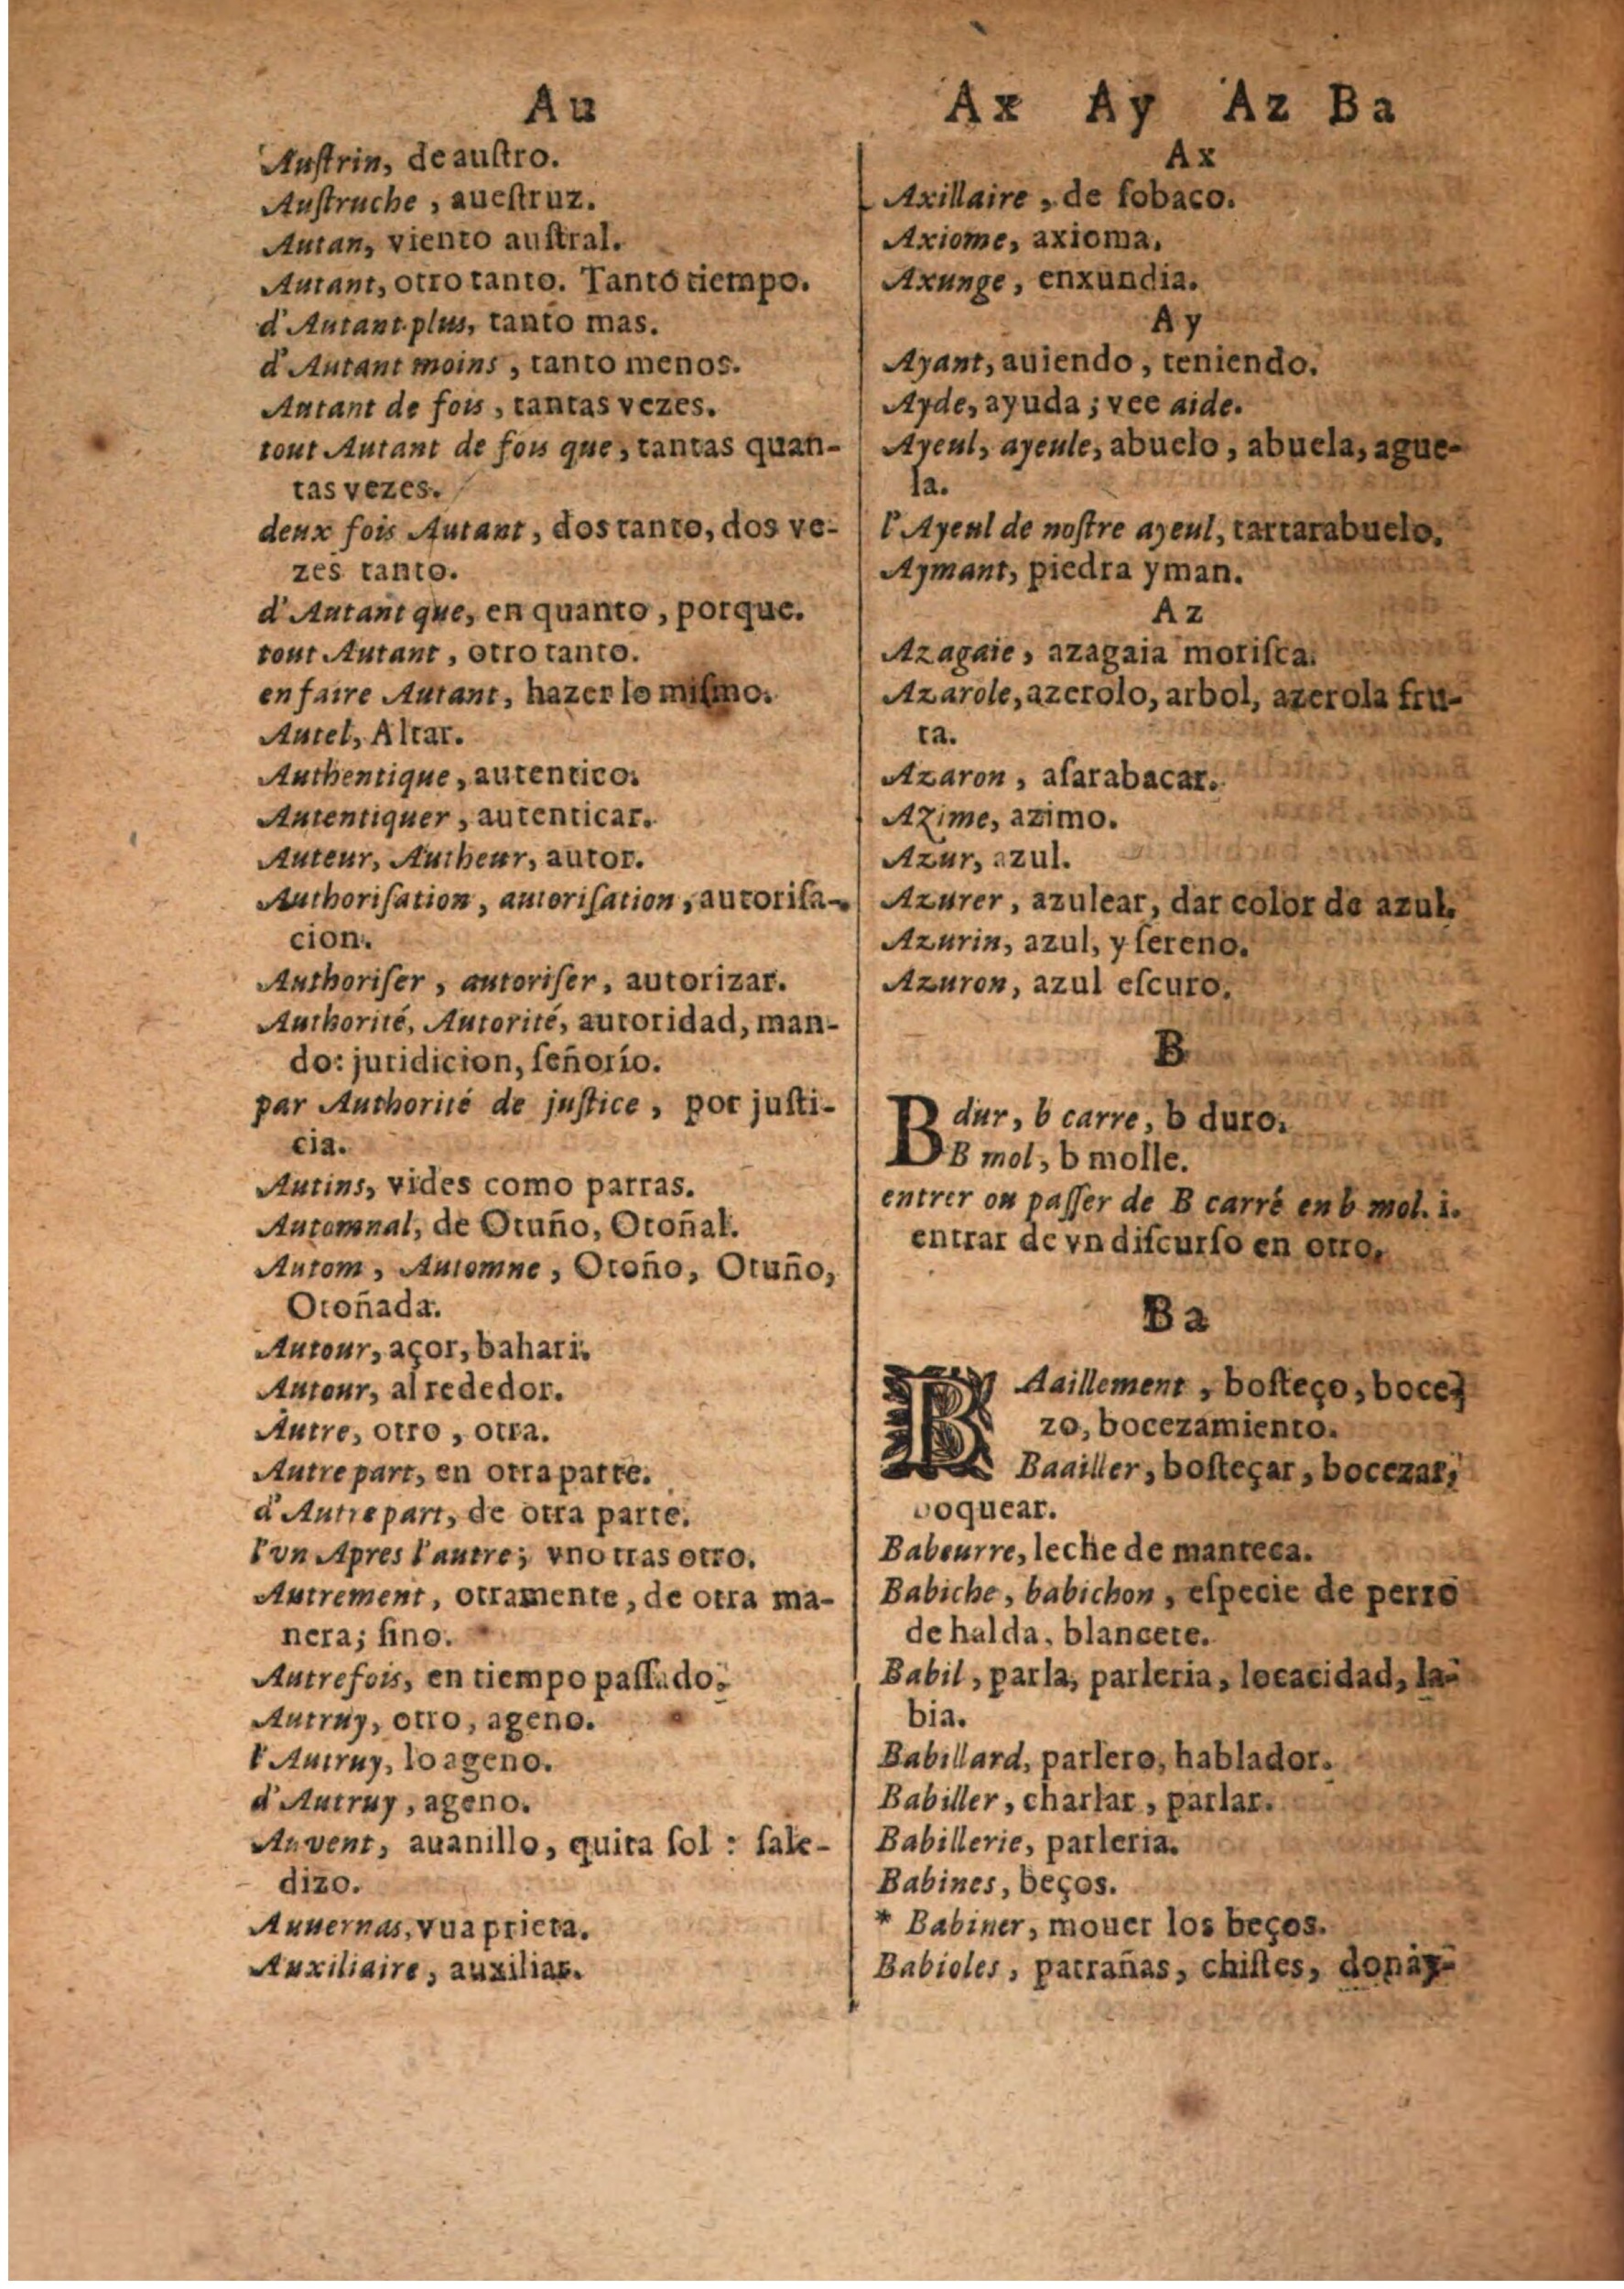 Au
Auſtrin, de auſtro.
Auſtruche, aueſtruz.
Autan, viento auſtral.
Autant, otro tanto. Tanto tiempo.
d'Autant plus, tanto mas.
d'Autant moins, tanto menos.
Autant de fois, tantas vezes.
tout Autant de fois que, tantas quan-
tas vezes.
deux fois Autant, dos tanto, dos ve-
zes tanto.
d'Autant que, en quanto, porque.
tout Autant, otro tanto.
en faire Autant, hazer lo miſmo.
Autel, Altar.
Authentique, autentico.
Autentiquer, autenticar.
Auteur, Autheur, autor.
Authoriſation, autoriſation, autoriſa-
cion.
Authoriſer, autoriſer, autorizar.
Authorité, Autorité, autoridad, man-
do: juridicion, ſeñorío.
par Authorité de juſtice, por juſti-
cia.
Autins, vides como parras.
Automnal, de Otuño, Otoñal.
Autom, Automne, Otoño, Otuño,
Otoñada.
Autour, açor, bahari.
Autour, al rededor.
Autre, otro, otra.
Autre part, en otra parte.
d'Autre part, de otra parte.
l'vn Apres l'autre; vno tras otro.
Autrement, otramente, de otra ma-
nera; ſino.
Autrefois, en tiempo paſſado.
Autruy, otro, ageno.
l'Autruy, lo ageno.
d'Autruy, ageno.
Auvent, auanillo, quita ſol: ſale-
dizo.
Auuernas, vua prieta.
Auxiliaire, auxiliar.
Ax Ay Az Ba
Ax
Axillaire, de ſobaco.
Axiome, axioma.
Axunge, enxundia.
Ay
Ayant, auiendo, teniendo.
Ayde, ayuda; vee aide.
Ayeul, ayeule, abuelo, abuela, ague-
la.
l'Ayeul de noſtre ayeul, tartarabuelo.
Aymant, piedra yman.
Az
Azagaie, azagaia moriſca.
Azarole, azerolo, arbol, azerola fru-
ta.
Azaron, aſarabacar.
Azime, azimo.
Azur, azul.
Azurer, azulear, dar color de azul.
Azurin, azul, y ſereno.
Azuron, azul eſcuro.
B
B dur, b carre, b duro.
B mol, b molle.
entrer ou paſſer de B carré en b mol. i.
entrar de vn diſcurſo en otro.
Ba
BAaillement, boſteço, boce-
zo, bocezamiento.
Baailler, boſteçar, bocezar,
boquear.
Babeurre, leche de manteca.
Babiche, babichon, eſpecie de perro
de halda, blancete.
Babil, parla, parleria, locacidad, la-
bia.
Babillard, parlero, hablador.
Babiller, charlar, parlar.
Babillerie, parleria.
Babines, beços.
* Babiner, mouer los beços.
Babioles, patrañas, chiſtes, donay-